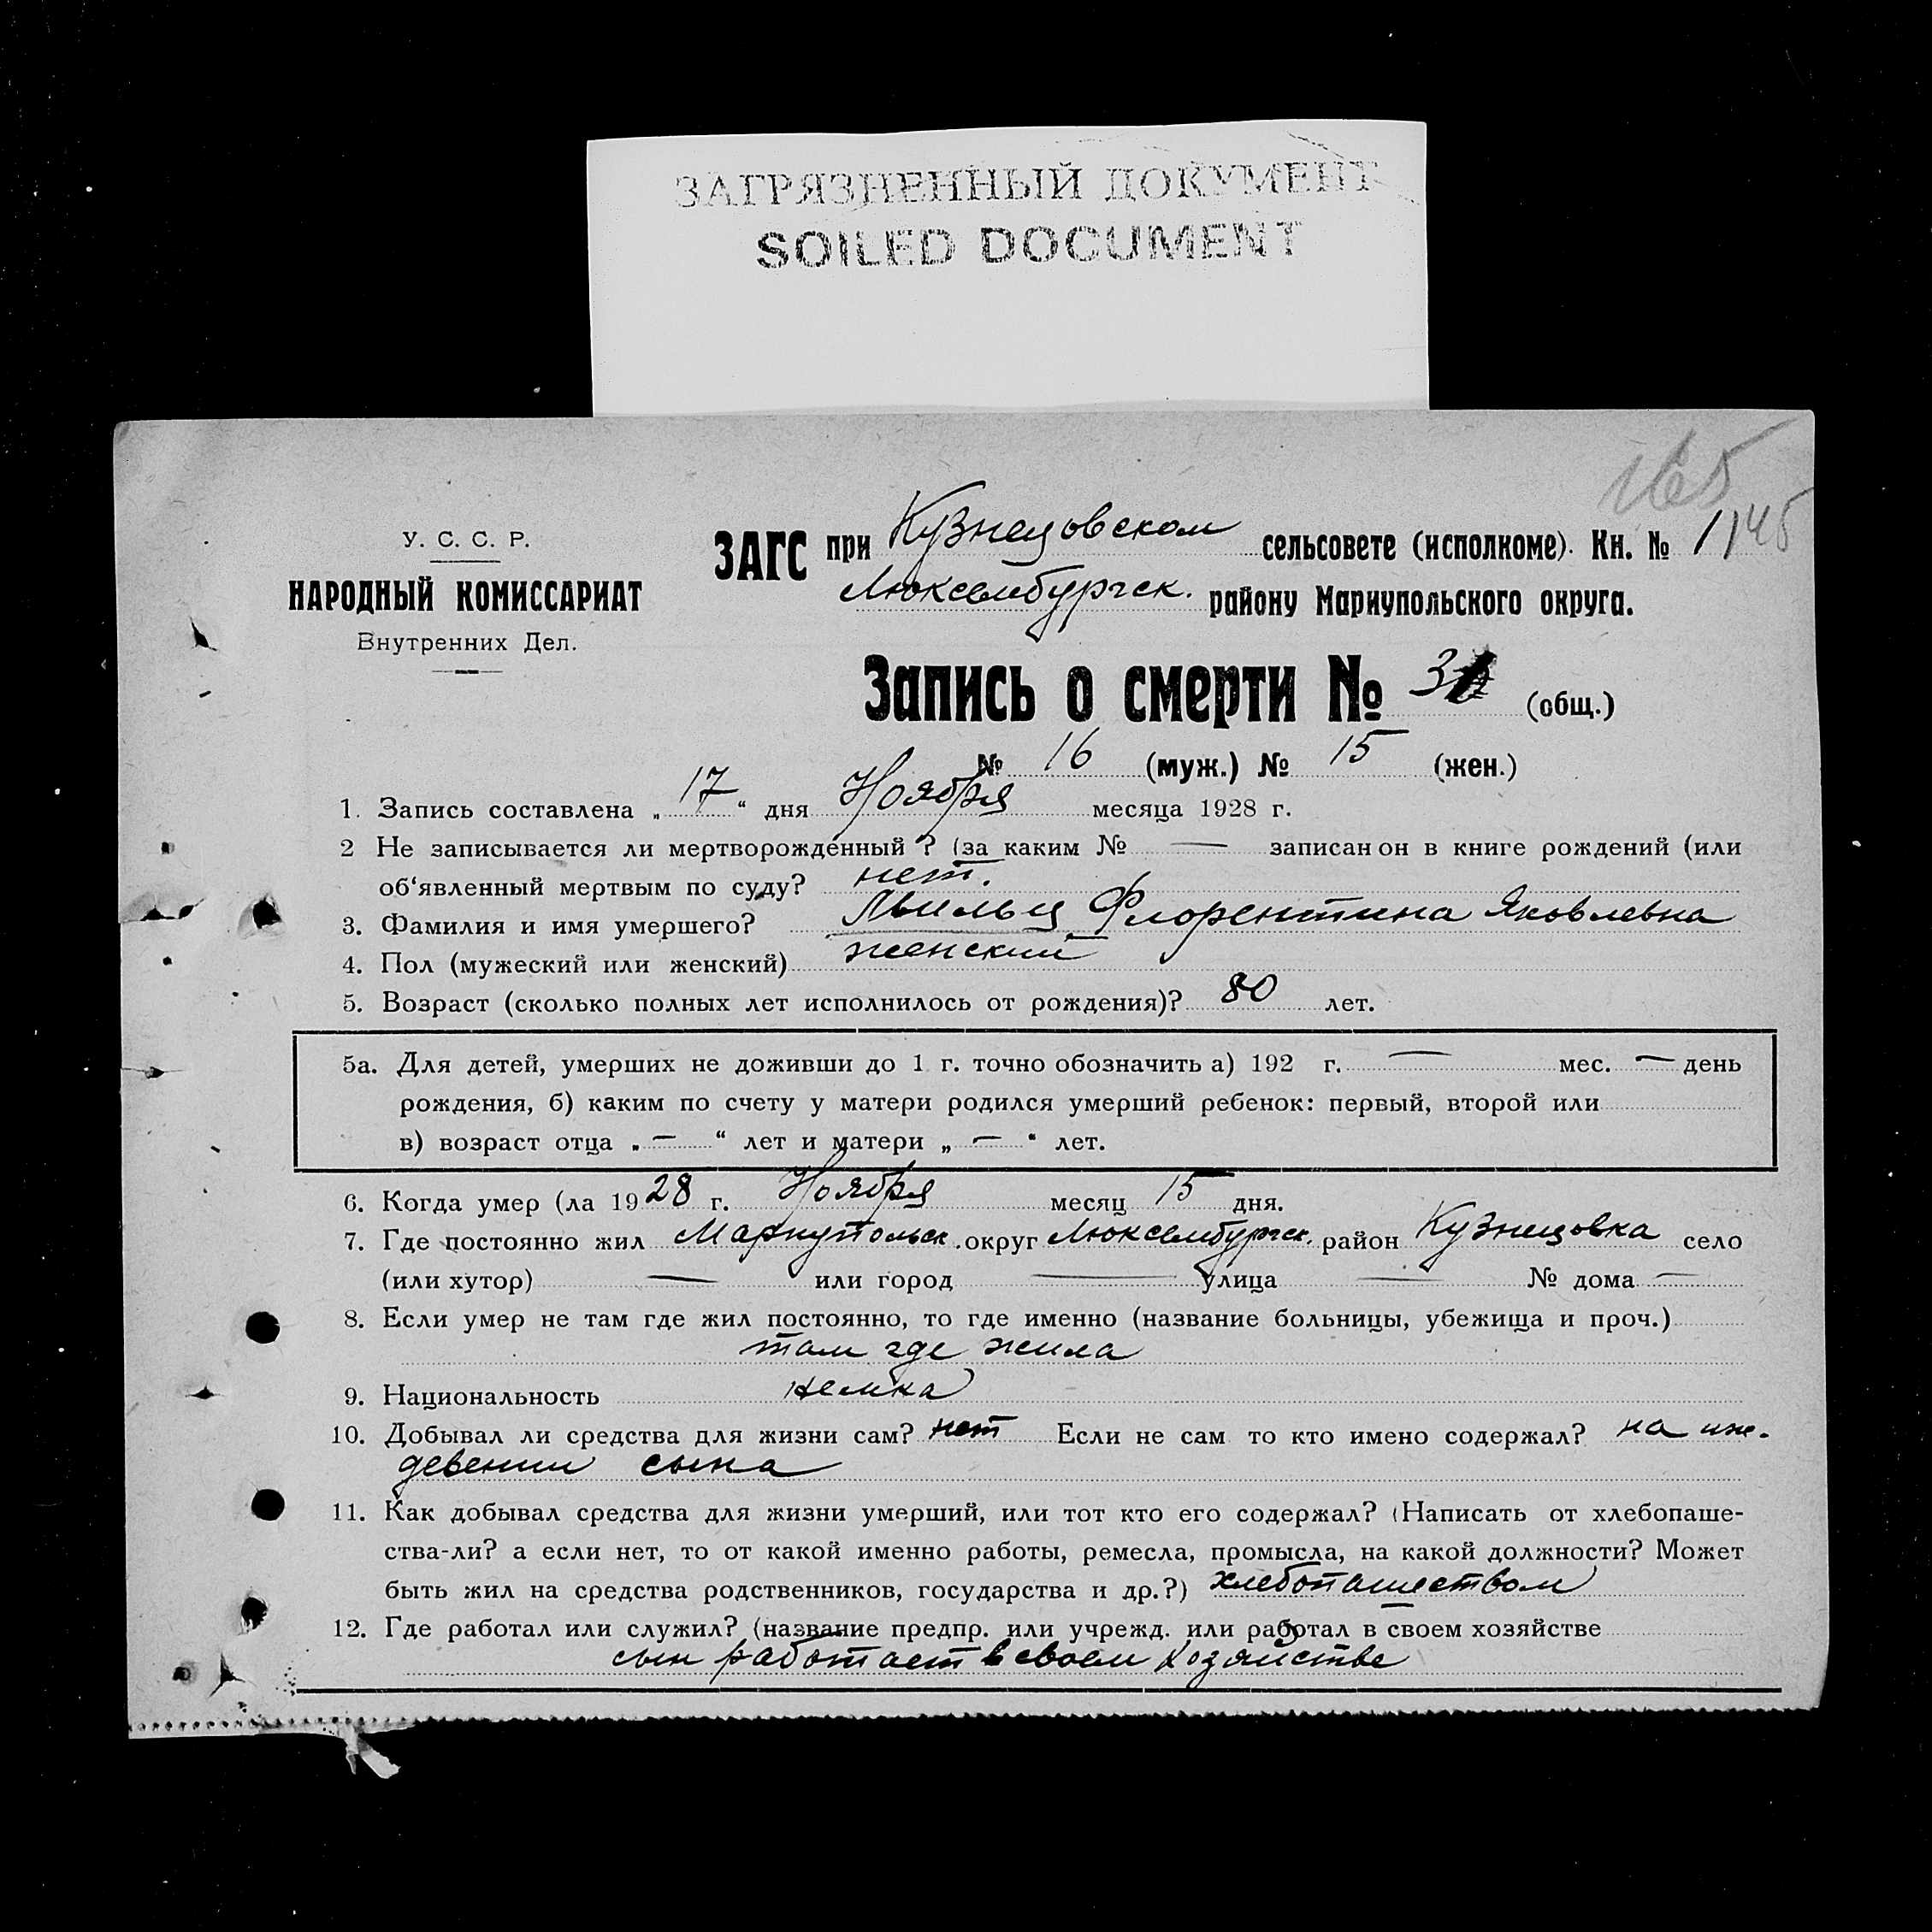 ЗАГРЯЗНЕННЫЙ ДОКУМЕНТ
SOILED DOCUMENT
165
У. С. С. Р.
НАРОДНЫЙ КОМИССАРИАТ
Внутренних Дел.
ЗАГС при Кузнецовском сельсовете (исполкоме). Кн. № 1 145
Люксембургск. району Мариупольского округа.
Запись о смерти № 31 (общ.)
№ 16 (муж.) № 15 (жен.)
1. Запись составлена „17“ дня Ноября месяца 1928 г.
2 Не записывается ли мертворожденный? (за каким № — записан он в книге рождений (или
об‘явленный мертвым по суду? нет.
3. Фамилия и имя умершего? Флорентина Яковлевна
4. Пол (мужеский или женский) женский
5. Возраст (сколько полных лет исполнилось от рождения)? 80 лет.
5а. Для детей, умерших не доживши до 1 г. точно обозначить а) 192 г. — мес. — день
рождения, б) каким по счету у матери родился умерший ребенок: первый, второй или
в) возраст отца „ — “ лет и матери „ — “ лет.
6. Когда умер (ла 1928 г. Ноября месяц 15 дня.
7. Где постоянно жил Мариупольск. округ Люксембургск. район Кузнецовка село
(или хутор) — или город — улица — № дома —
8. Если умер не там где жил постоянно, то где именно (название больницы, убежища и проч.)
там где жила
9. Национальность немка
10. Добывал ли средства для жизни сам? нет Если не сам то кто имено содержал? на иж-
девении сына
11. Как добывал средства для жизни умерший, или тот кто его содержал? (Написать от хлебопаше-
ства-ли? а если нет, то от какой именно работы, ремесла, промысла, на какой должности? Может
быть жил на средства родственников, государства и др.?) хлебопашеством
12. Где работал или служил? (название предпр. или учрежд. или работал в своем хозяйстве
сын работает в своем хозяйстве